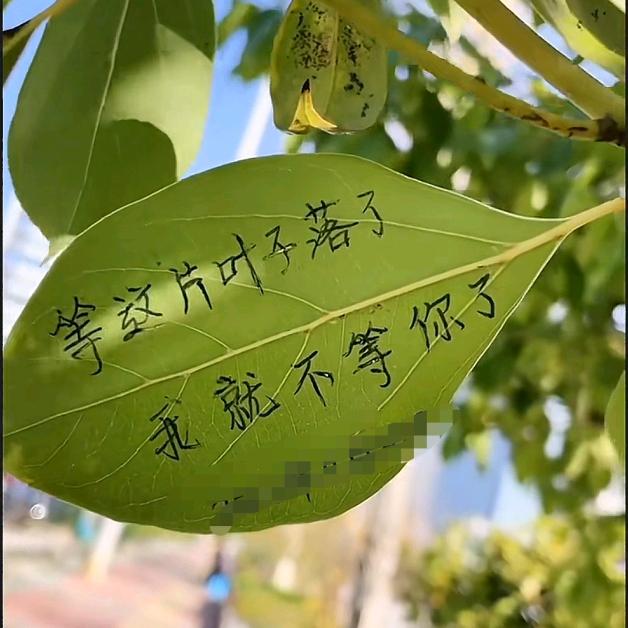 等这片叶子落了
我就不等你了